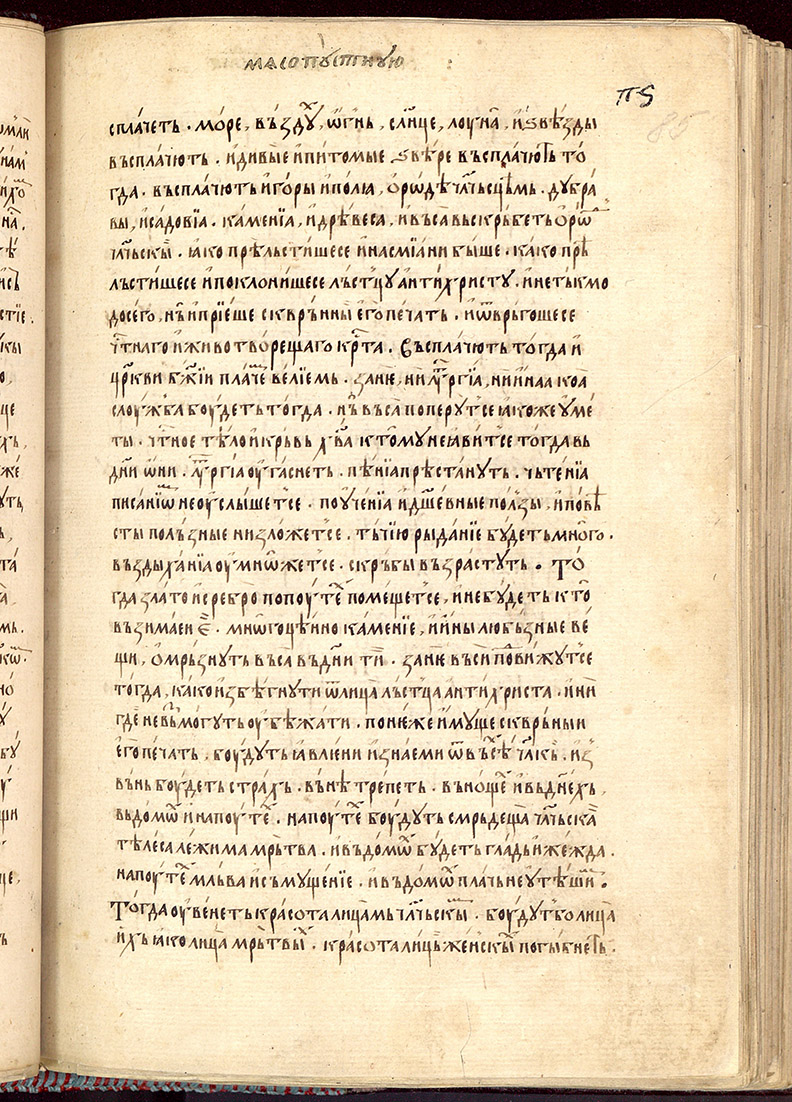 масопꙋстнꙋю
п҃ѕ
85
сплачеть · море, въздꙋ̾х, ѡгнь, сл҃нце, лоуна, и ѕвѣзды
въсплачють · и дивые и питомые ѕвѣре въсплачють то
гда · въсплачють и горы и полꙗ, о родѣ чл҃чьсцѣмь · дꙋбра
вы, и садовїа · каменїа, и дрѣвеса, и въса въскрьбеть о рѡдꙋ
чл҃чьскы · ꙗко прѣльстишесе и насмїани быше · како прѣ
льстишесе и поклонишесе льстцꙋ антихристꙋ · и нетькмо
досего, нь и прїеше сквръннꙋ его печать · и ѿвръгошесе
чтнаго и животворещаго крⷭта · Въсплачють тогда и
црⷦкви бж҃їи плачемь велїемь · зане, ни лиⷮргїа, ни инаа коа
слоужба боудеть тогда · нь въса поперꙋтсе ꙗкоже ꙋме
ты · чтⷭное тѣло и кръвь хв҃а ктомꙋ неꙗвитсе тогда вь
дн҃и ѡни · лиⷮргїа оугаснеть · пѣнїа прѣстанꙋть · чьтенїа
писанїѡⷨ неоуслышетсе · поꙋченїа и дш҃евные ползы, и повѣ
сты польѕные низложетсе · тьчїю рыданїе бꙋдеть много ·
въздыханїа оумнѡжетсе · скръбы възрастꙋть · То
гда злато и сребро по поутеⷯ помещетсе, и небꙋдеть кто
възимаеи е · мнѡгоцѣнно каменїе, и ины любьзные ве
щи, омръзнꙋть въса въ дн҃и ти · зане въси подвижꙋтсе
тогда, како избѣгнꙋти ѿ лица льстⷰца антихриста · и ни
где невъзмогꙋть оубѣжати · понеже имꙋще скврьныи
его печать, боудꙋть ꙗвлени и знаеми ѿ въсеⷯ чл҃кь · из
вънь боудеть страхь · вънѣ трепеть · вънощеⷯ и въднеⷯхь,
въдомѡⷯ и напоутеⷯ · напоутеⷯ боудꙋть смрьдеща чл҃чьскаа
тѣлеса лежима мрътва · и въдомѡⷯ бꙋдеть гладь и жежда ·
напоутеⷯ мльва и съмꙋщенїе · и въдомѡⷯ плачь неꙋтѣшнїи ·
Тогда оувенеть красота лицамь чл҃чьскыⷨ · боудꙋтбо лица
ихь ꙗко лица мрътвыⷯ · красота лиць женскыⷯ погыбнеть ·